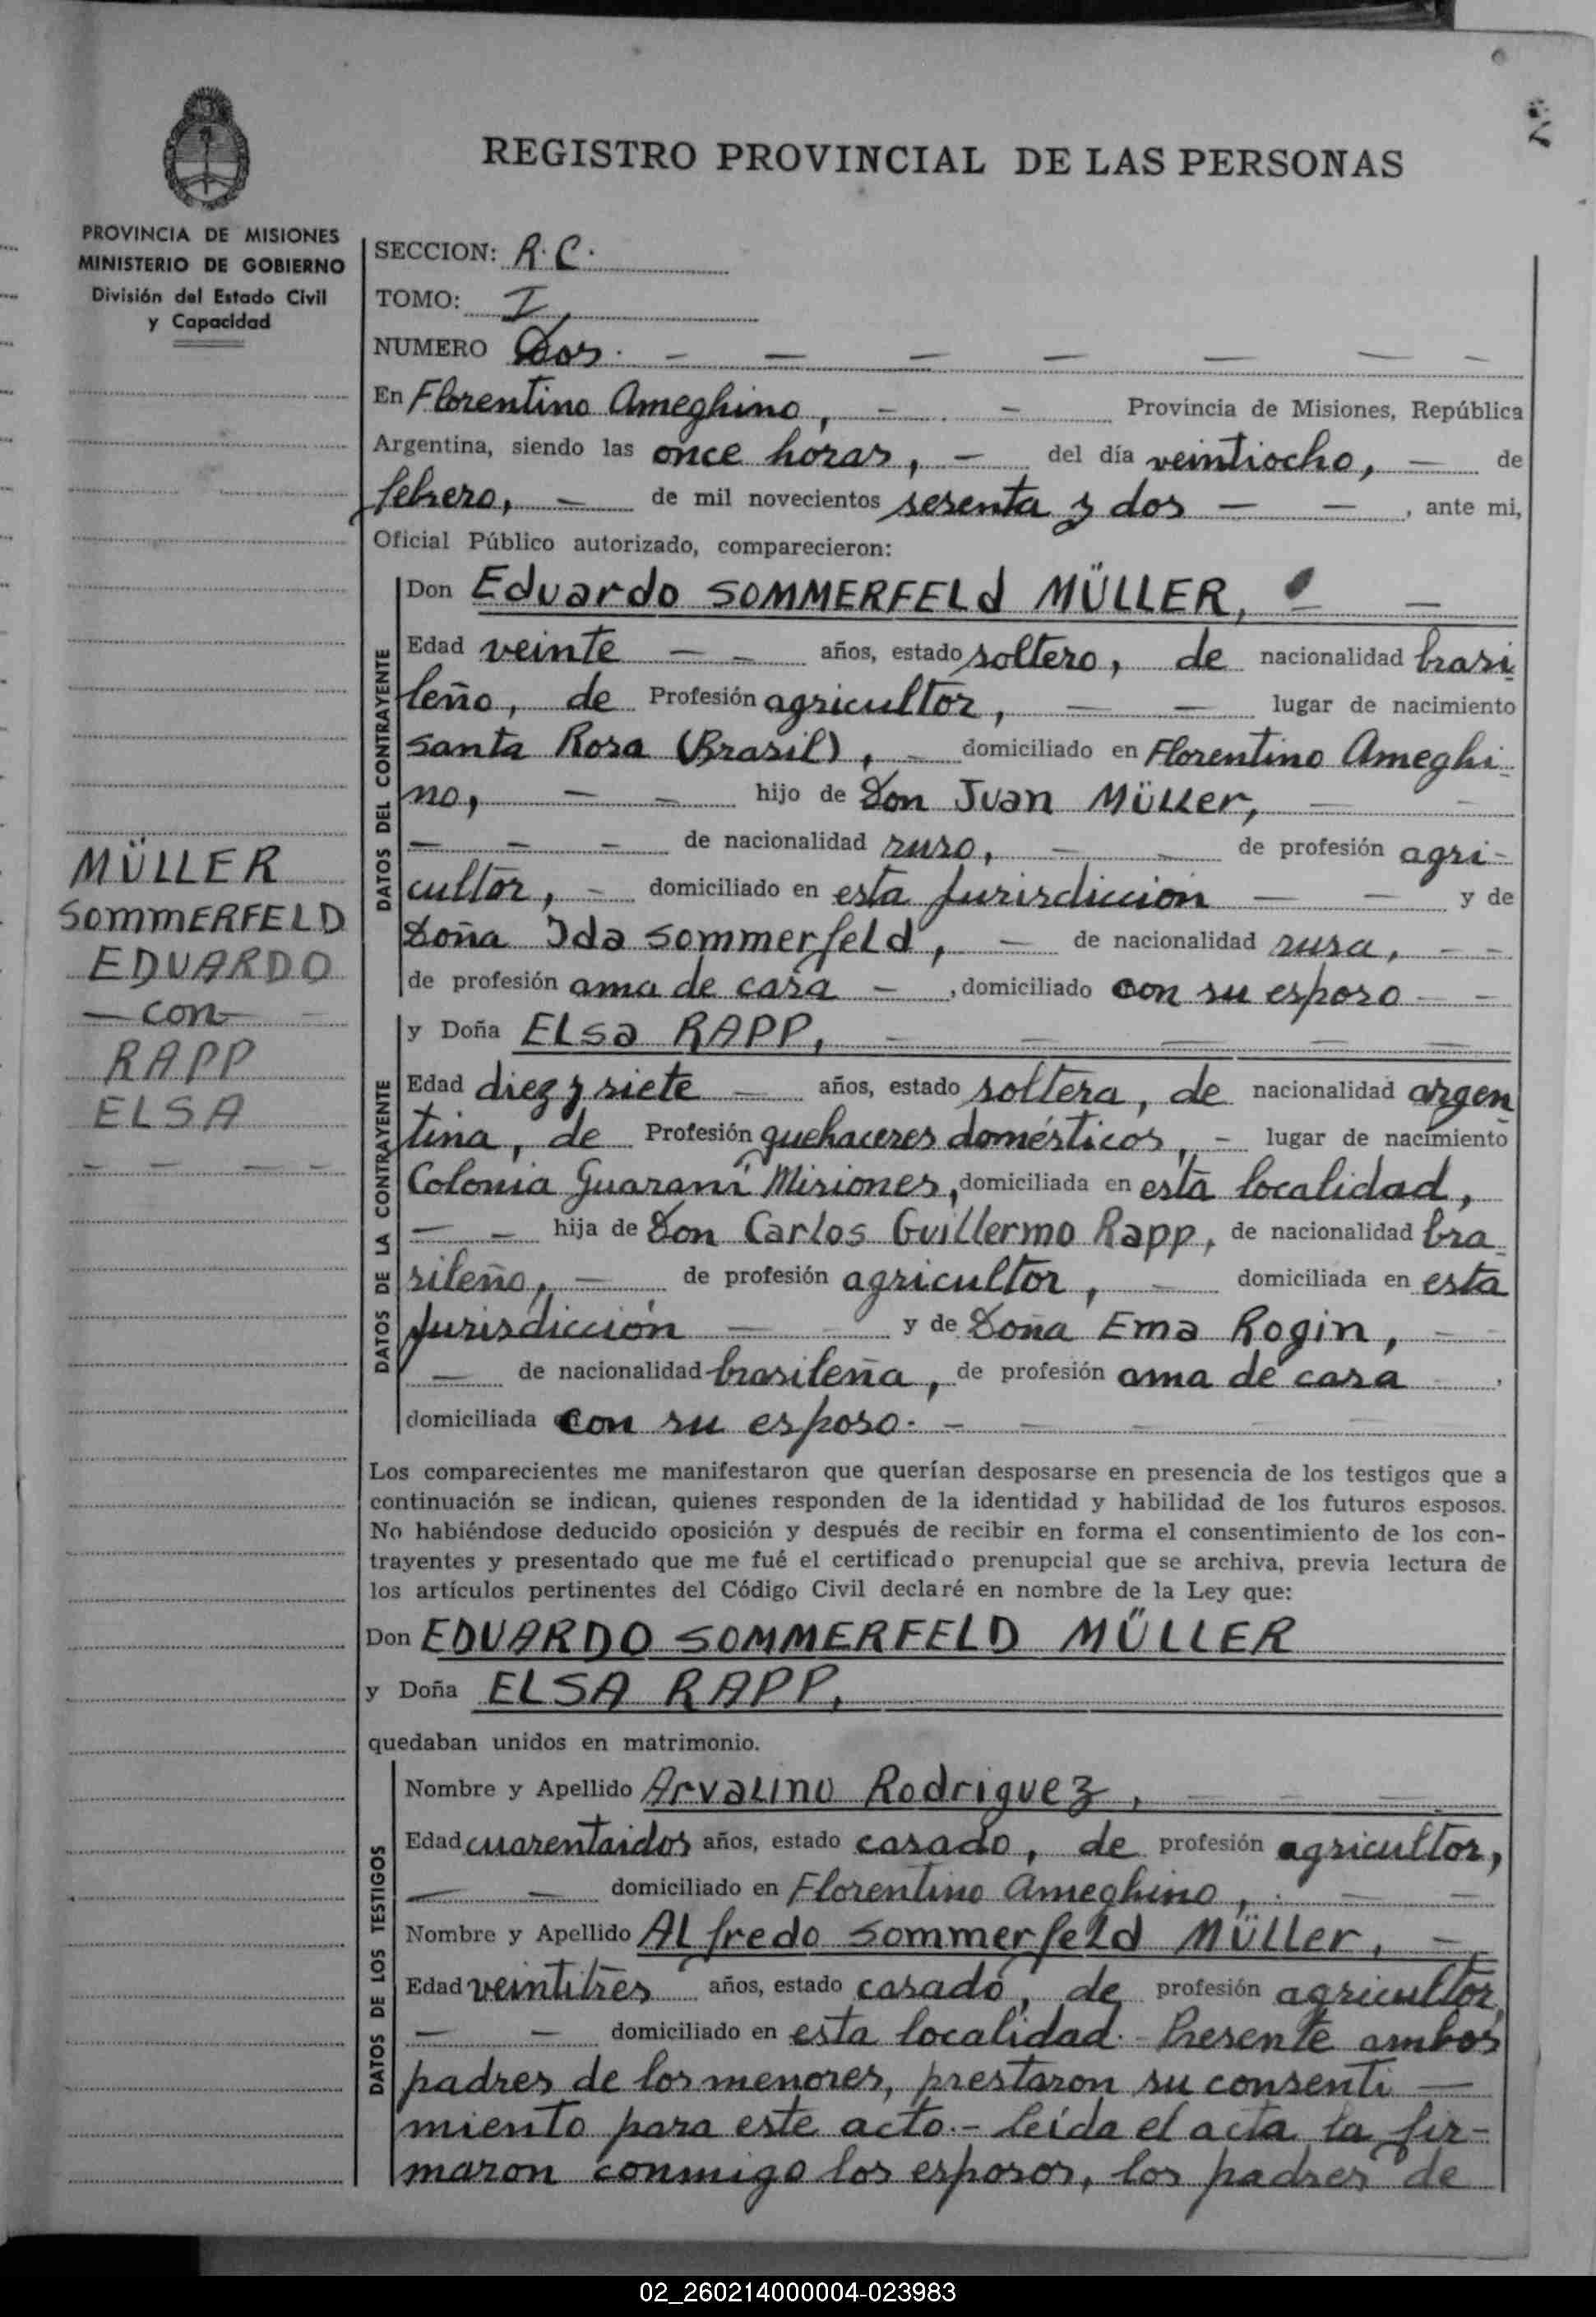 REGISTRO PROVINCIAL DE LAS PERSONAS
PROVINCIA DE MISIONES
MINISTERIO DE GOBIERNO
División del Estado Civil
y Capacidad
MÜLLER
SOMMERFELD
EDUARDO
— con —
RAPP
ELSA
SECCION: R. C.
TOMO: I
NUMERO Dos. — — — — — — —
En Florentino Ameghino, — — Provincia de Misiones, República
Argentina, siendo las once horas, — del día veintiocho, — de
febrero, — de mil novecientos sesenta y dos — —, ante mi,
Oficial Público autorizado, comparecieron:
DATOS DEL CONTRAYENTE
Don Eduardo SOMMERFELd MÜLLER, — —
Edad veinte — — años, estado soltero, de nacionalidad brasi
leño, de Profesión agricultor, — — lugar de nacimiento
Santa Rosa (Brasil), — domiciliado en Florentino Ameghi-
no, — — hijo de Don Juan Müller, — —
— — — de nacionalidad ruso, — — de profesión agri-
cultor, — domiciliado en esta Jurisdiccion — — y de
Doña Ida Sommerfeld, — de nacionalidad rusa, — —
de profesión ama de casa —, domiciliado con su esposo — —
DATOS DE LA CONTRAYENTE
y Doña ELsa RAPP, — — — — —
Edad diez y siete — años, estado soltera, de nacionalidad argen
tina, de Profesión quehaceres domésticos, — lugar de nacimiento
Colonia Guaraní Misiones, domiciliada en esta localidad,
— — hija de Don Carlos Guillermo Rapp, de nacionalidad bra-
sileño, — de profesión agricultor, — domiciliada en esta
Jurisdicción — y de Doña Ema Rogin, — —
— de nacionalidad brasileña, de profesión ama de casa
domiciliada con su esposo. — — — — —
Los comparecientes me manifestaron que querían desposarse en presencia de los testigos que a
continuación se indican, quienes responden de la identidad y habilidad de los futuros esposos.
No habiéndose deducido oposición y después de recibir en forma el consentimiento de los con-
trayentes y presentado que me fué el certificado prenupcial que se archiva, previa lectura de
los artículos pertinentes del Código Civil declaré en nombre de la Ley que:
Don EDUARDO SOMMERFELD MÜLLER
y Doña ELSA RAPP,
quedaban unidos en matrimonio.
DATOS DE LOS TESTIGOS
Nombre y Apellido Arvalino Rodriguez, — — —
Edad cuarentaidos años, estado casado, de profesión agricultor,
— — domiciliado en Florentino Ameghino, — —
Nombre y Apellido Alfredo Sommerfeld Müller, —
Edad veintitres años, estado casado, de profesión agricultor,
— — domiciliado en esta localidad. - Presente ambos
padres de los menores, prestaron su consenti —
miento para este acto. - Leída el acta la fir-
maron conmigo los esposos, los padres de
02_260214000004-023983